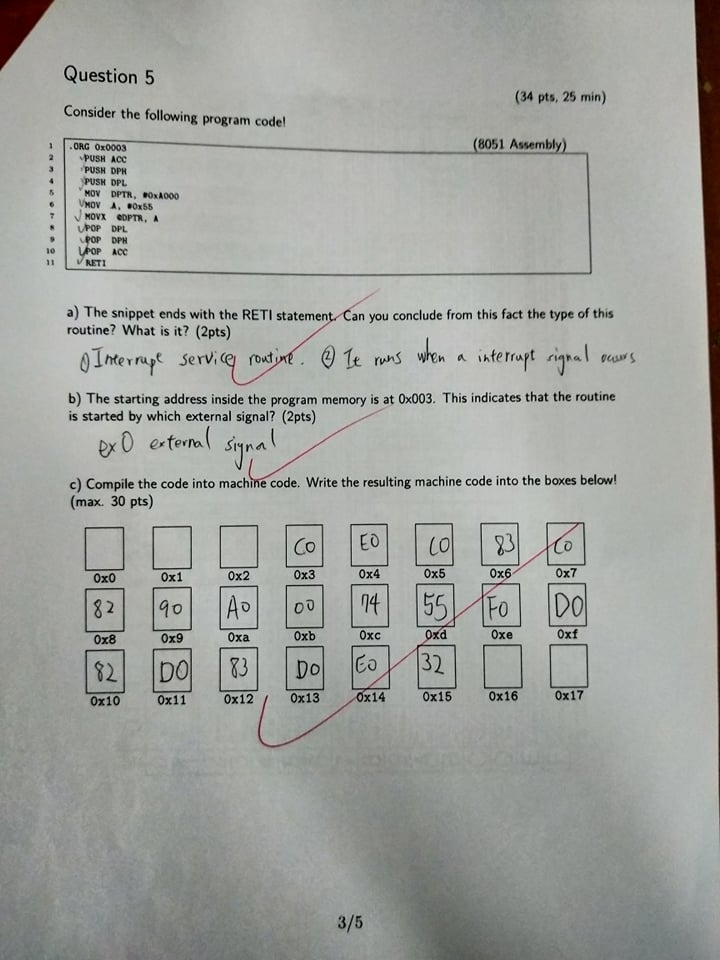 Question 5
(34 pts, 25 min)
Consider the following program code!
(8051 Assembly)
1 .ORG 0x0003
2 PUSH ACC
3 PUSH DPH
4 PUSH DPL
5 MOV DPTR, #0xA000
6 MOV A, #0x55
7 MOVX @DPTR, A
8 POP DPL
9 POP DPH
10 POP ACC
11 RETI
a) The snippet ends with the RETI statement. Can you conclude from this fact the type of this
routine? What is it? (2pts)
① Interrupt service routine. ② It runs when a interrupt signal occurs
b) The starting address inside the program memory is at 0x003. This indicates that the routine
is started by which external signal? (2pts)
ex0 external signal
c) Compile the code into machine code. Write the resulting machine code into the boxes below!
(max. 30 pts)
C0 E0 C0 83 C0
0x0 0x1 0x2 0x3 0x4 0x5 0x6 0x7
82 90 A0 00 74 55 F0 D0
0x8 0x9 0xa 0xb 0xc 0xd 0xe 0xf
82 D0 83 D0 E0 32
0x10 0x11 0x12 0x13 0x14 0x15 0x16 0x17
3/5